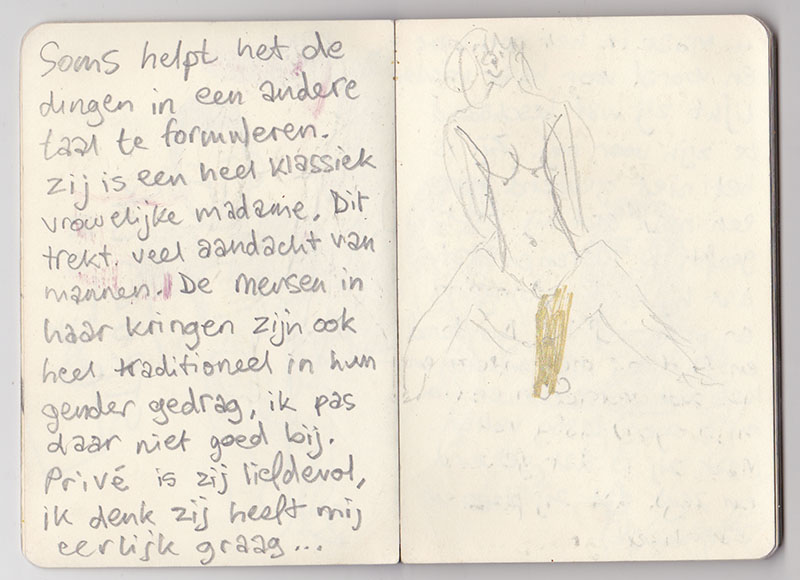 Soms helpt het de
dingen in een andere
taal te formuleren.
Zij is een heel klassiek
vrouwelijke madame. Dit
trekt veel aandacht van
mannen. De mensen in
haar kringen zijn ook
heel traditioneel in hun
gender gedrag, ik pas
daar niet goed bij.
Privé is zij liefdevol,
ik denk zij heeft mij
eerlijk graag...